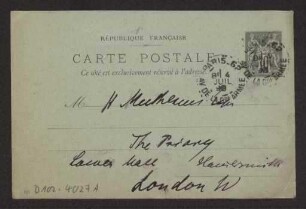 RÉPUBLIQUE FRANÇAISE
CARTE POSTALE
Ce côté est exclusivement réservé à l'adresse.
PARIS
M H Muthesius
The Priory
Lower Mall Hammersmith
London W
D102-4527A